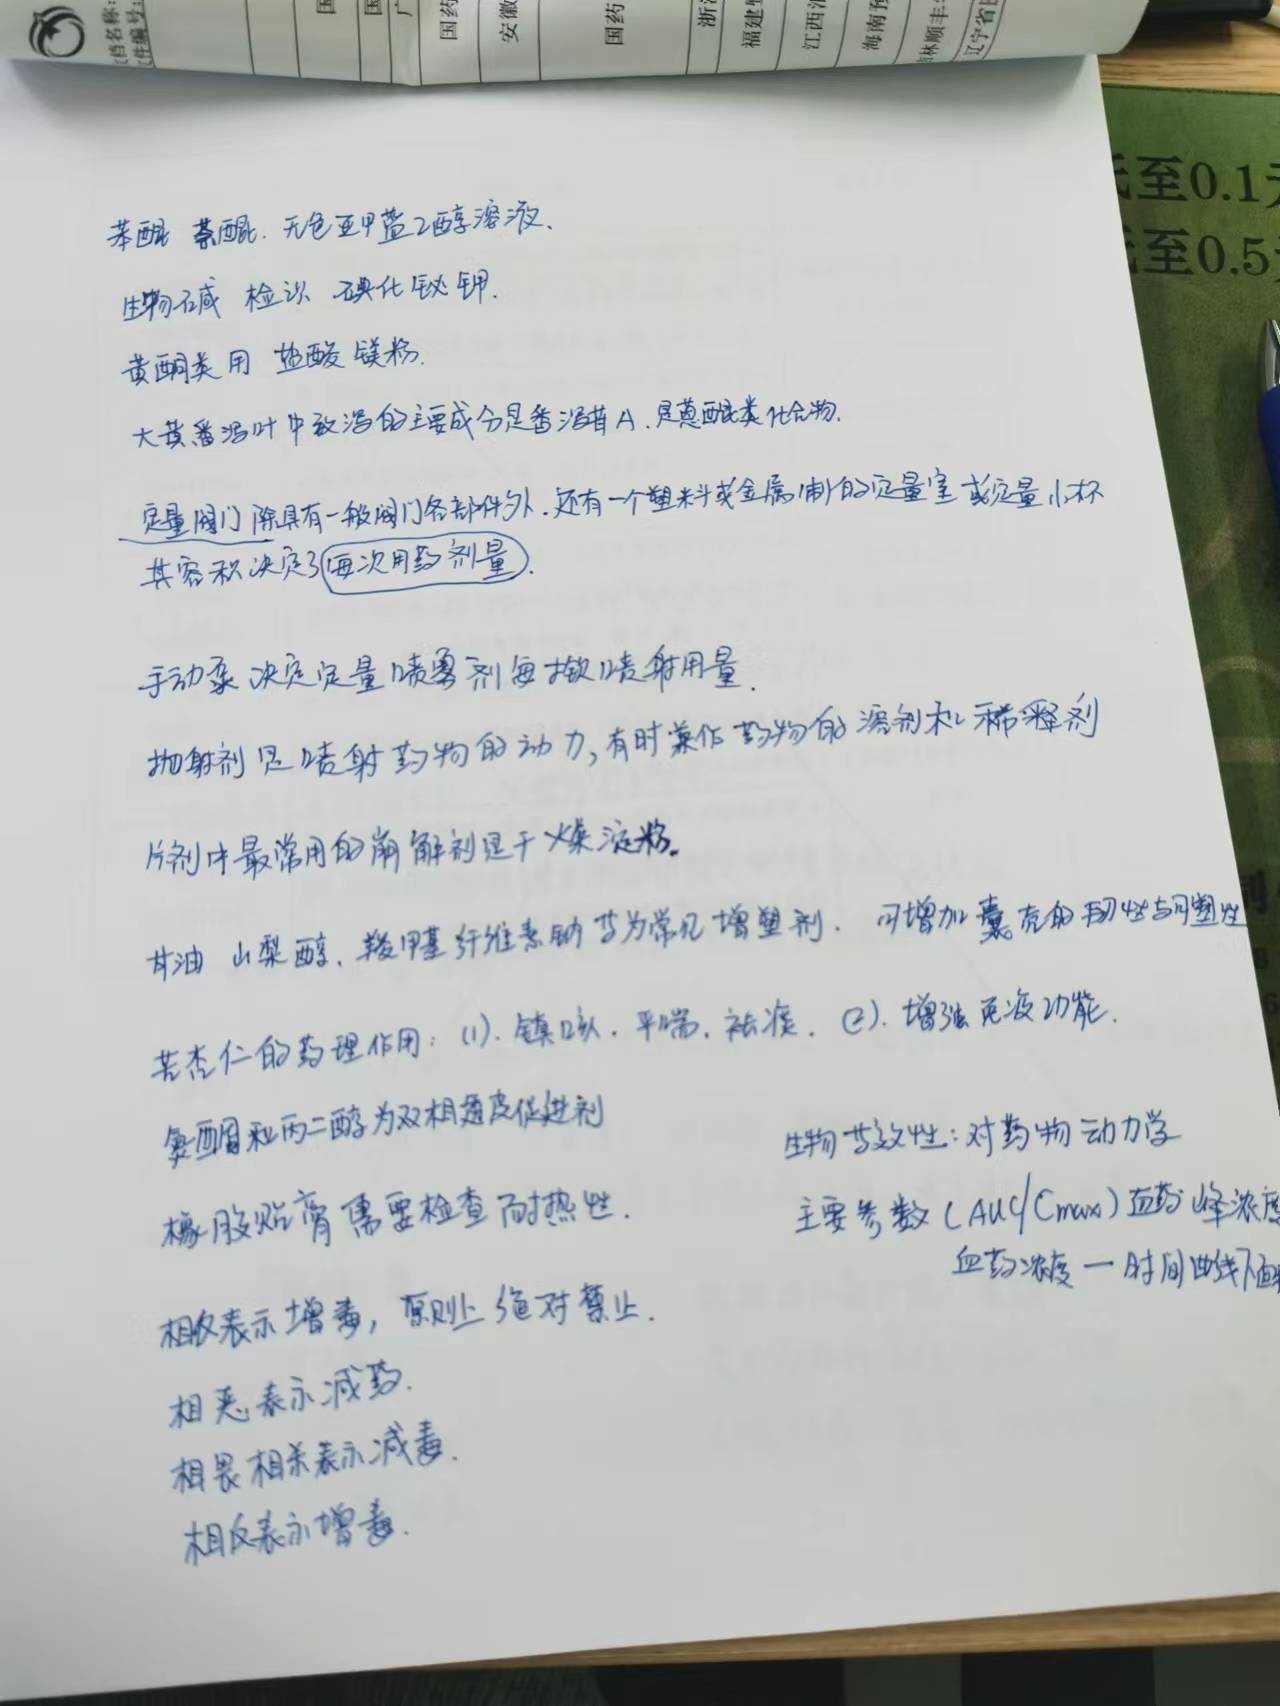 文档名称:
文件编号:
国药
安徽
国药
浙江
福建
江西
海南
吉林顺丰
辽宁省
低至0.1元
低至0.5
苯醌 萘醌. 无色亚甲蓝乙醇溶液.
生物碱 检识 碘化铋钾.
黄酮类用 盐酸镁粉.
大黄番泻叶中致泻的主要成分是番泻苷A. 是蒽醌类化合物.
定量阀门除具有一般阀门各部件外. 还有一个塑料或金属制的定量室或定量小杯
其容积决定了每次用药剂量.
手动泵决定定量喷雾剂每揿喷射用量.
抛射剂是喷射药物的动力,有时兼作药物的溶剂和稀释剂
片剂中最常用的崩解剂是干燥淀粉.
甘油 山梨醇. 羧甲基纤维素钠等为常见增塑剂. 可增加囊壳的韧性与可塑性
苦杏仁的药理作用: (1). 镇咳. 平喘. 祛痰. (2). 增强免疫功能.
氮酮和丙二醇为双相透皮促进剂
生物等效性: 对药物动力学
橡胶贴膏需要检查耐热性.
主要参数 (AUC/Cmax) 血药峰浓度
血药浓度一时间曲线下面
相反表示增毒, 原则上绝对禁止.
相恶表示减药.
相畏相杀表示减毒.
相反表示增毒.